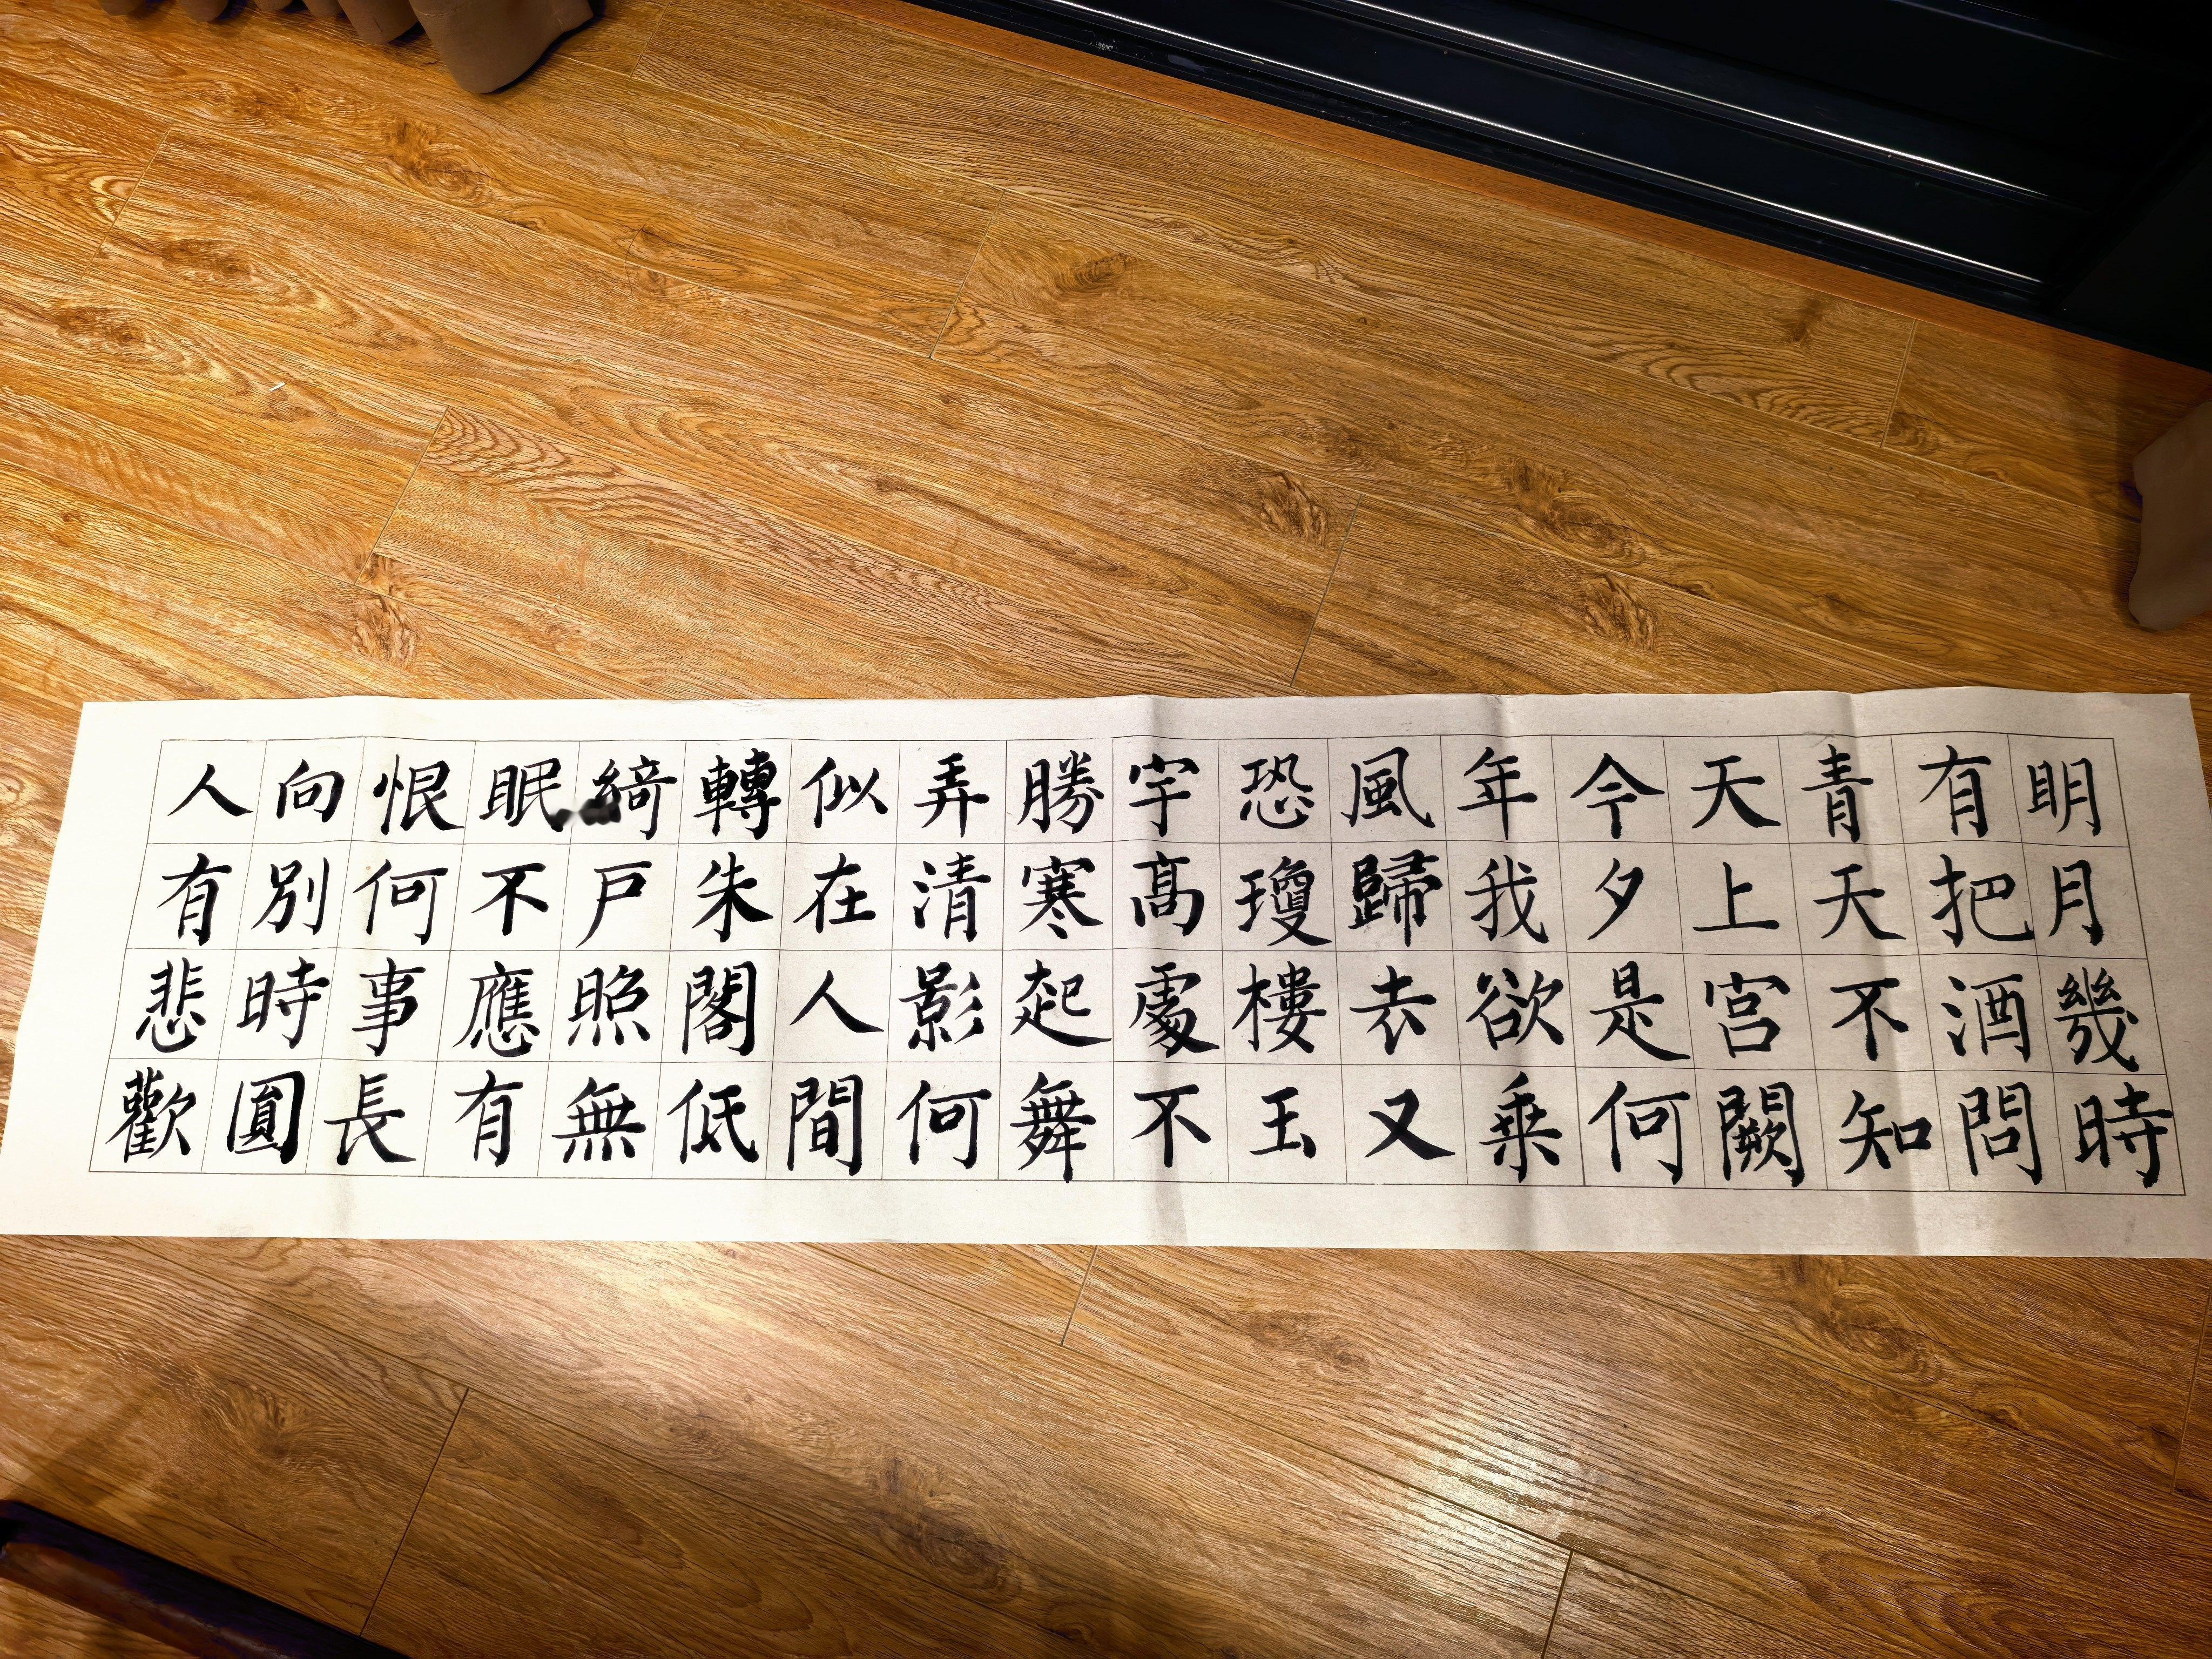 明月幾時
有把酒問
青天不知
天上宮闕
今夕是何
年我欲乗
風歸去又
恐瓊樓玉
宇高處不
勝寒起舞
弄清影何
似在人間
轉朱閣低
綺户照無
眠不應有
恨何事長
向別時圓
人有悲歡